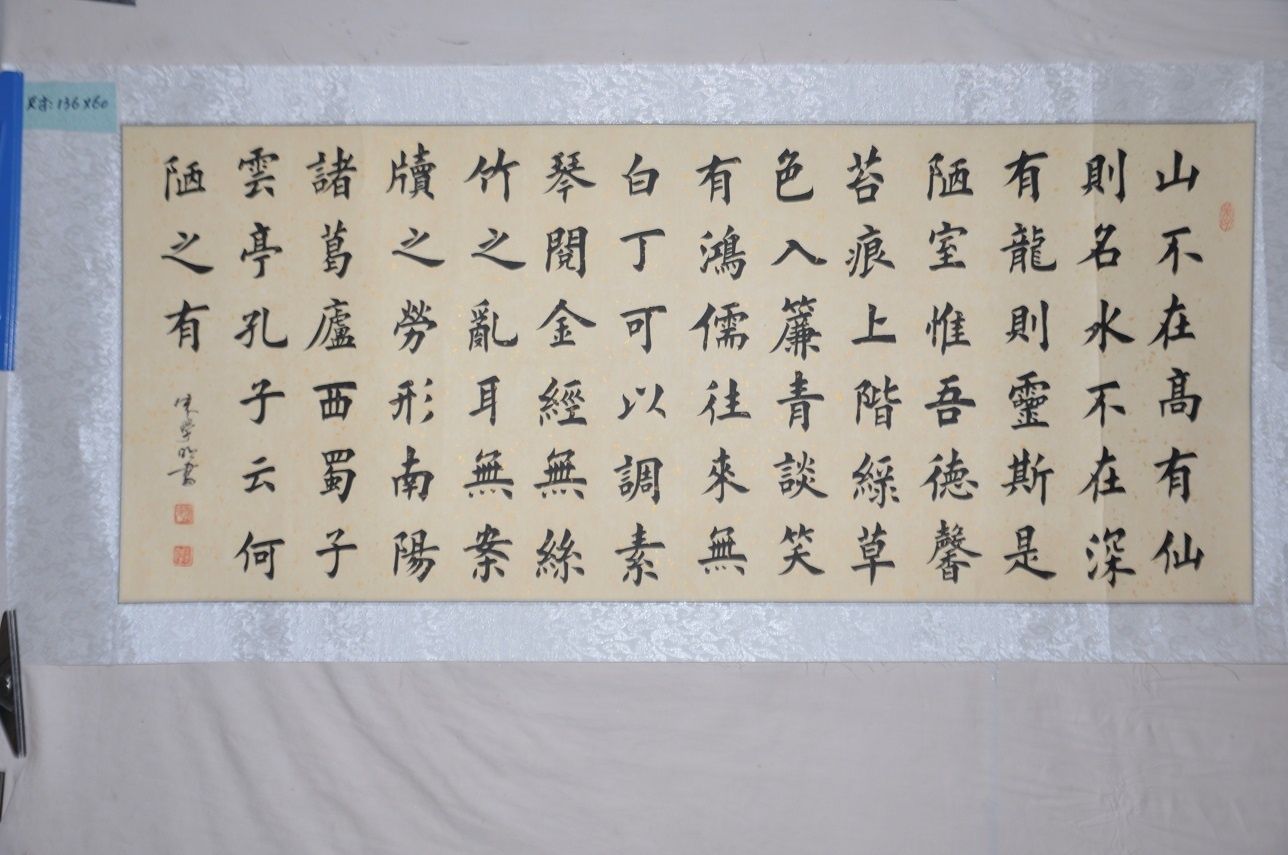 尺寸:136×60
山不在高有仙
則名水不在深
有龍則靈斯是
陋室惟吾德馨
苔痕上階綠草
色入簾青談笑
有鴻儒往來無
白丁可以調素
琴閱金經無絲
竹之亂耳無案
牘之勞形南陽
諸葛廬西蜀子
雲亭孔子云何
陋之有